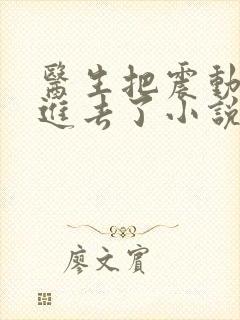 醫生把震動
進去了小說
廖文賓